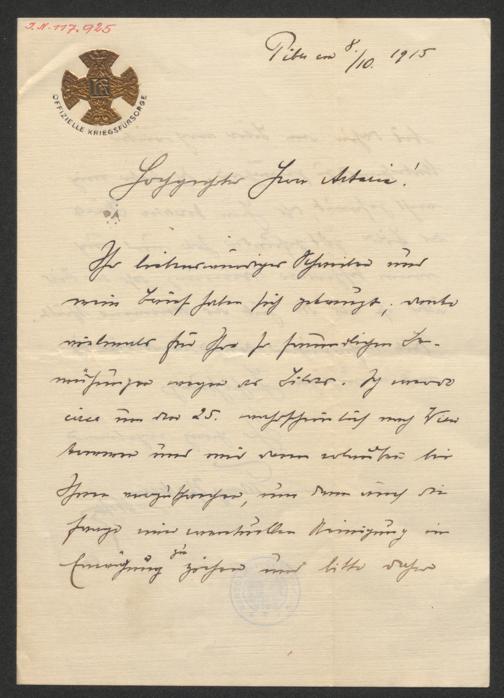 J.N. 117.925
OFFIZIELLE KRIEGSFÜRSORGE
8./10. 1915
Hochgeehrter Herr Artaria!
Ihr liebenswürdiges Schreiben und
mein Brief haben sich gekreuzt, danke
vielmals für Ihre so freundlichen Be-
mühungen wegen des Bildes. Ich werde
circa um den 25. wahrscheinlich nach Wien
kommen und mir dann erlauben bei
Ihnen vorzusprechen, um dann auch die
Frage einer eventuellen Reinigung in
Erwägung zu ziehen und bitte daher